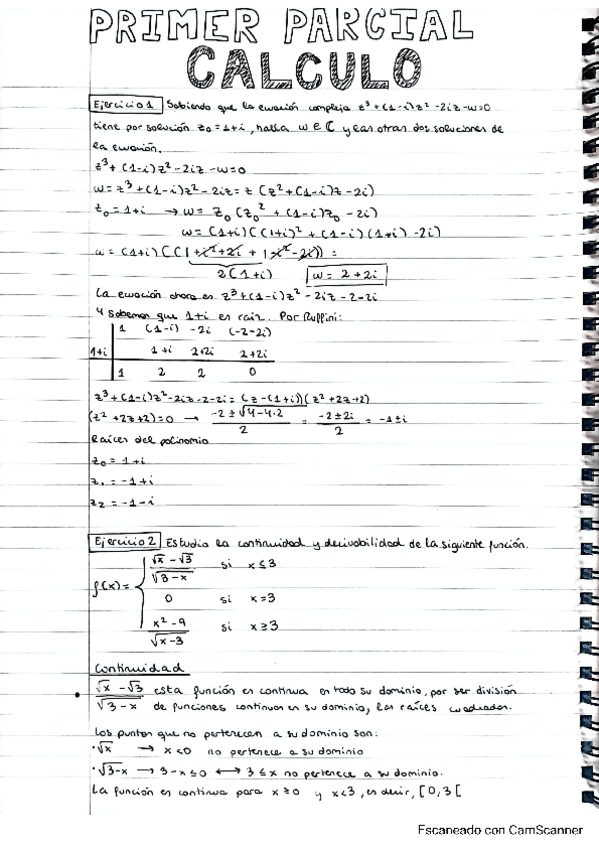 PRIMER PARCIAL
CALCULO
Ejercicio 1 Sabiendo que la ecuación compleja z³+(1-i)z²-2iz-w=0
tiene por solución z₀=1+i, halla w∈ℂ y las otras dos soluciones de
la ecuación.
z³+(1-i)z²-2iz-w=0
w=z³+(1-i)z²-2iz=z(z²+(1-i)z-2i)
z₀=1+i → w=z₀(z₀²+(1-i)z₀-2i)
w=(1+i)((1+i)²+(1-i)(1+i)-2i)
w=(1+i)((1+i²+2i+1-i²-2i))=
2(1+i) w=2+2i
La ecuación ahora es z³+(1-i)z²-2iz-2-2i
Y sabemos que 1+i es raíz. Por Ruffini:
1 (1-i) -2i (-2-2i)
1+i 1+i 2+2i 2+2i
1 2 2 0
z³+(1-i)z²-2iz-2-2i=(z-(1+i))(z²+2z+2)
(z²+2z+2)=0 → (-2±√4-4·2)/2 = (-2±2i)/2 = -1±i
Raíces del polinomio
z₀=1+i
z₁=-1+i
z₂=-1-i
Ejercicio 2 Estudia la continuidad y derivabilidad de la siguiente función.
(√x-√3)/√3-x si x≤3
f(x)= 0 si x=3
(x²-9)/√x-3 si x≥3
Continuidad
• (√x-√3)/√3-x esta función es continua en todo su dominio, por ser división
de funciones continuas en su dominio, las raíces cuadradas.
Los puntos que no pertenecen a su dominio son:
·√x → x<0 no pertenece a su dominio
·√3-x → 3-x≤0 ↔ 3≤x no pertenece a su dominio.
La función es continua para x≥0 y x<3, es decir, [0,3[
Escaneado con CamScanner